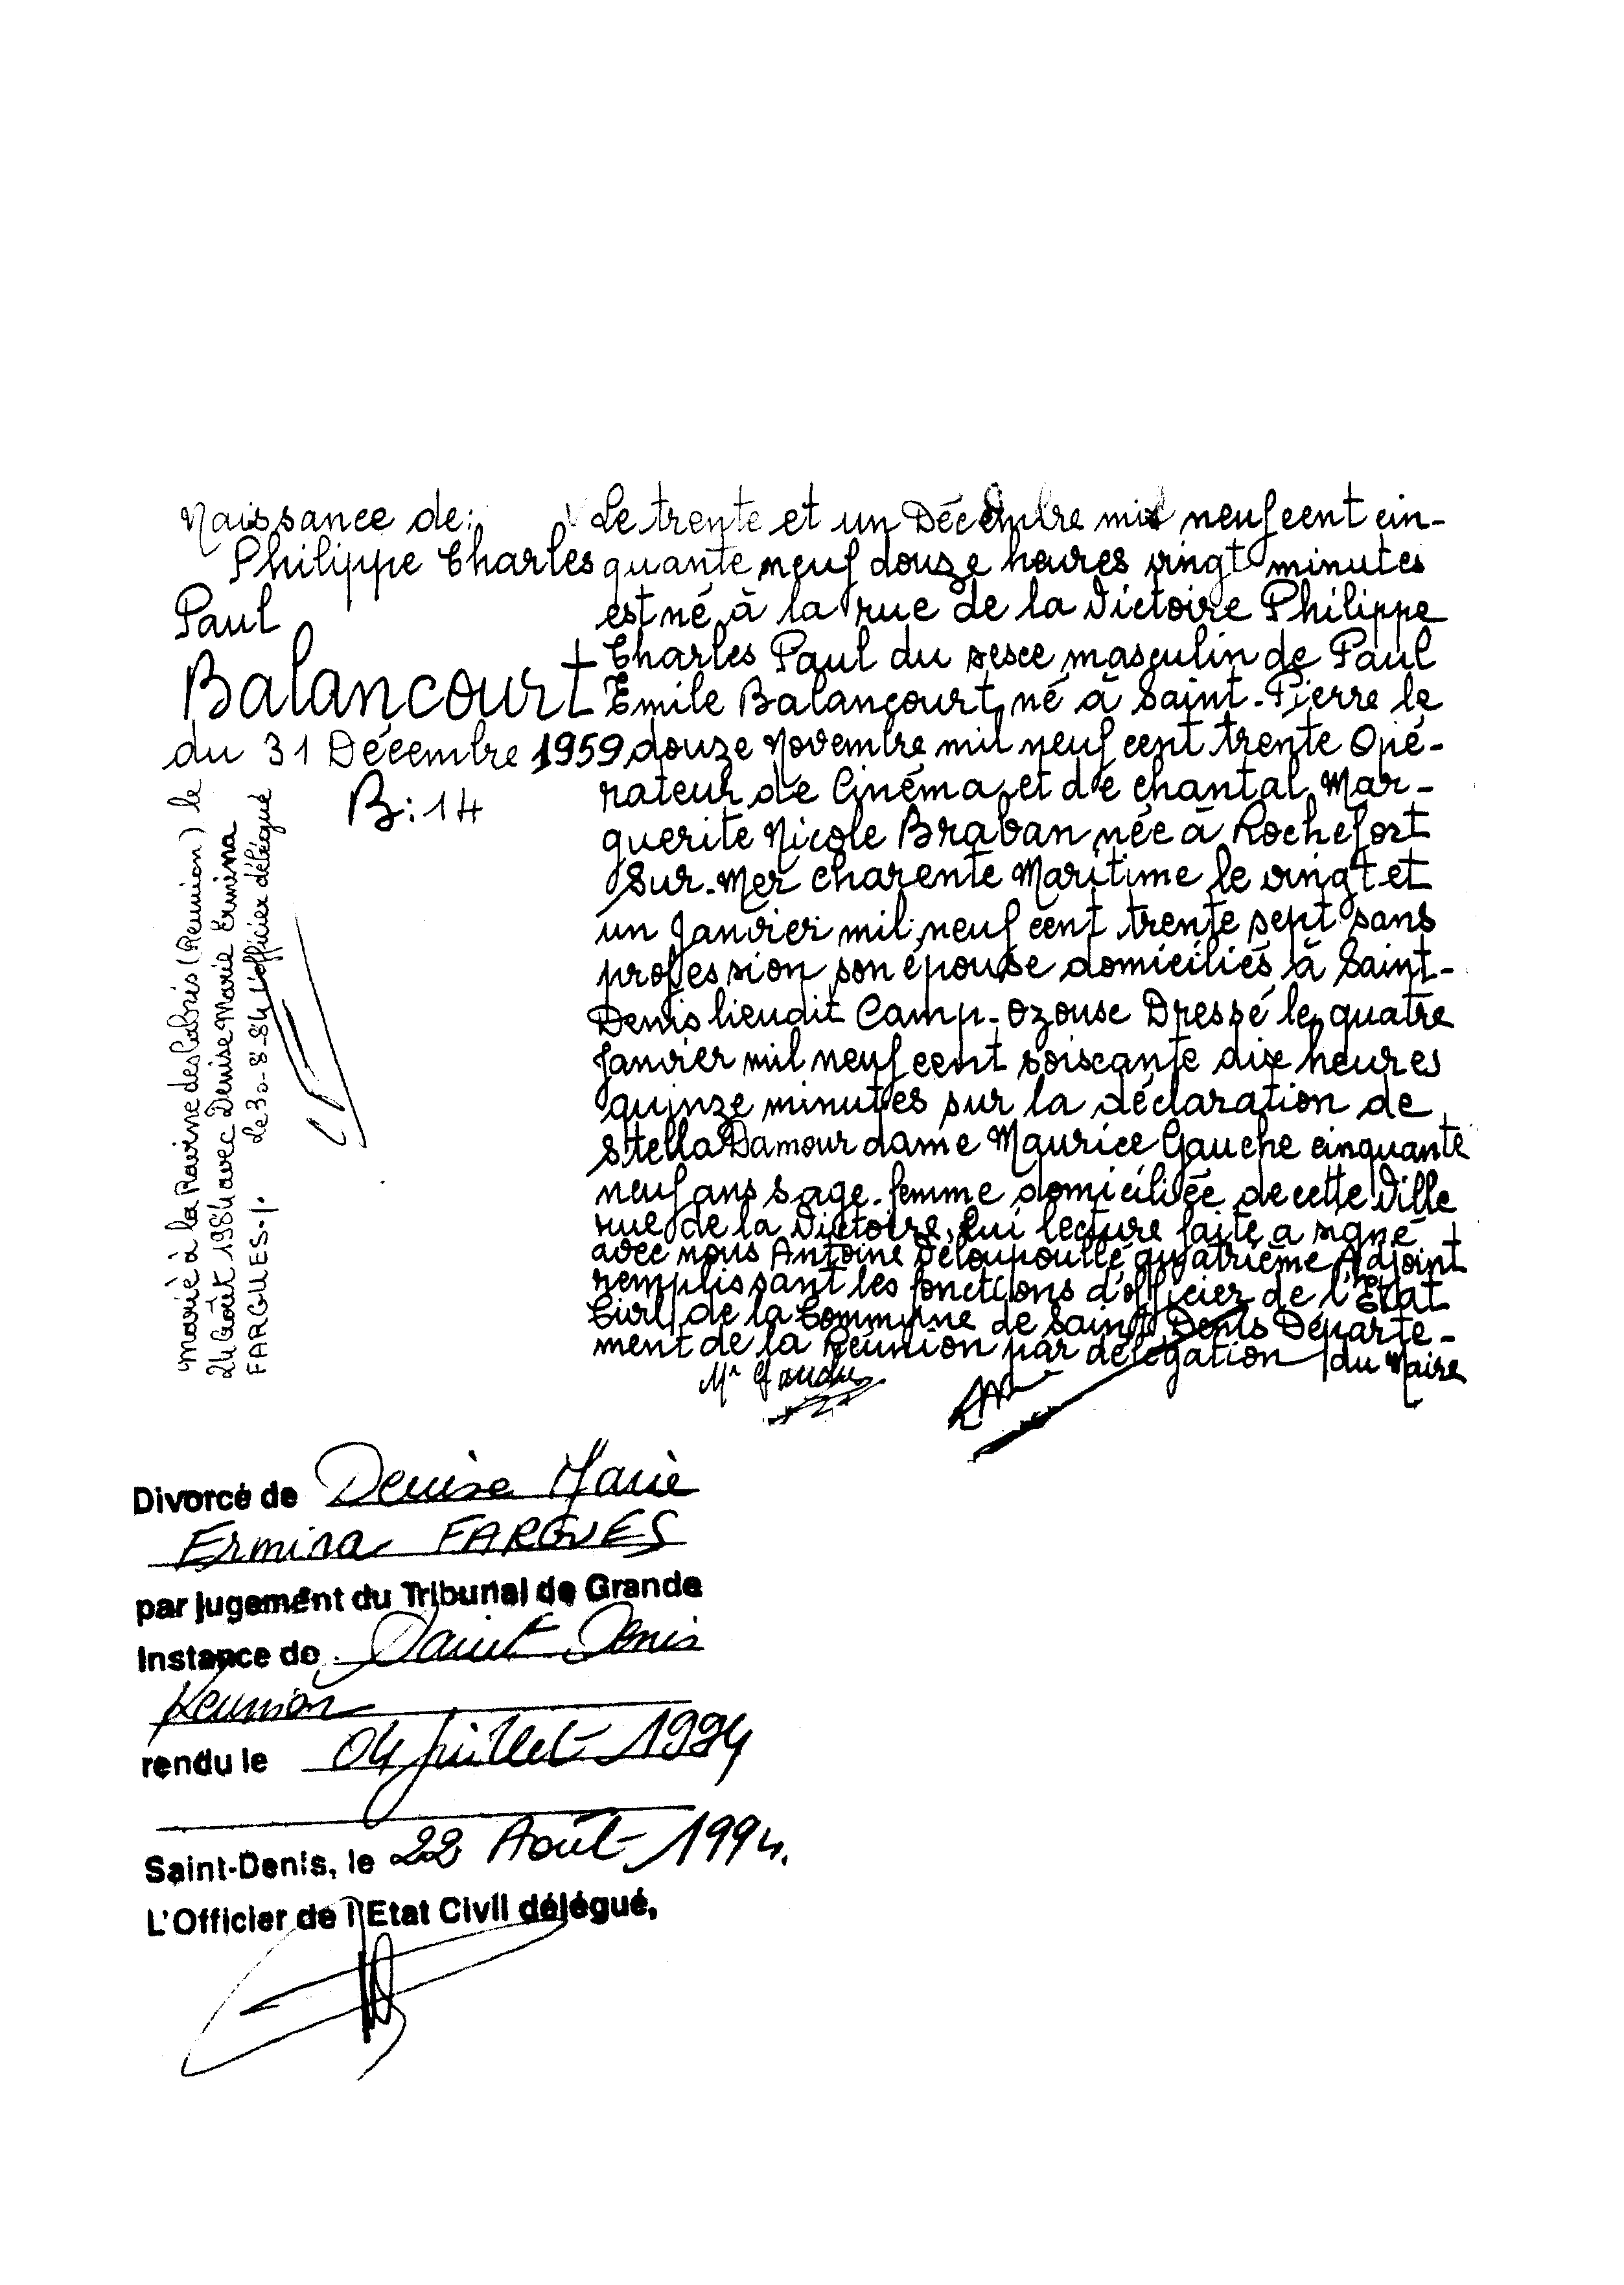 Naissance de:
Philippe Charles
Paul
Balancourt
du 31 Décembre 1959
B: 14
Le trente et un Décembre mil neuf cent cin-
quante neuf douze heures vingt minutes
est né à la rue de la Victoire Philippe
Charles Paul du sexe masculin de Paul
Emile Balancourt né à Saint-Pierre le
douze Novembre mil neuf cent trente Opé-
rateur de Cinéma et de Chantal Mar-
guerite Nicole Braban née à Rochefort
Sur-Mer Charente Maritime le vingt et
un Janvier mil neuf cent trente sept sans
profession son épouse domiciliés à Saint-
Denis lieudit Camp-Ozouse Dressé le quatre
Janvier mil neuf cent soixante dix heures
quinze minutes sur la déclaration de
Stella Damour dame Maurice Gauche cinquante
neuf ans sage-femme domiciliée de cette Ville
rue de la Victoire, qui lecture faite a signé
avec nous Antoine Deloupoulle quatrième Adjoint
remplissant les fonctions d'officier de l'Etat
Civil de la Commune de Saint Denis Départe-
ment de la Réunion par délégation du Maire
Marié à la Ravine des Cabris (Réunion) le
24 Août 1984 avec Denise Marie Ermina
FARGUES-/. Le 30-8-84 L'officier délégué
Divorcé de Denise Marie
Ermina FARGUES
par jugement du Tribunal de Grande
Instance de Saint Denis
Réunion
rendu le 04 Juillet 1994
Saint-Denis, le 22 Août 1994.
L'Officier de l'Etat Civil délégué,